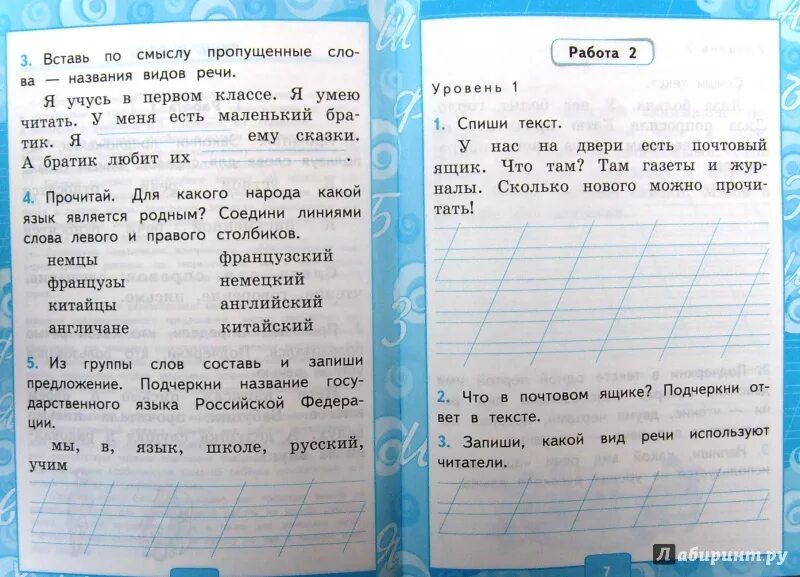 3. Вставь по смыслу пропущенные сло-
ва — названия видов речи.
Я учусь в первом классе. Я умею
читать. У меня есть маленький бра-
тик. Я ему сказки.
А братик любит их .
4. Прочитай. Для какого народа какой
язык является родным? Соедини линиями
слова левого и правого столбиков.
немцы французский
французы немецкий
китайцы английский
англичане китайский
5. Из группы слов составь и запиши
предложение. Подчеркни название госу-
дарственного языка Российской Федера-
ции.
мы, в, язык, школе, русский,
учим
Работа 2
Уровень 1
1. Спиши текст.
У нас на двери есть почтовый
ящик. Что там? Там газеты и жур-
налы. Сколько нового можно прочи-
тать!
2. Что в почтовом ящике? Подчеркни от-
вет в тексте.
3. Запиши, какой вид речи используют
читатели.
7
Лабиринт.ру